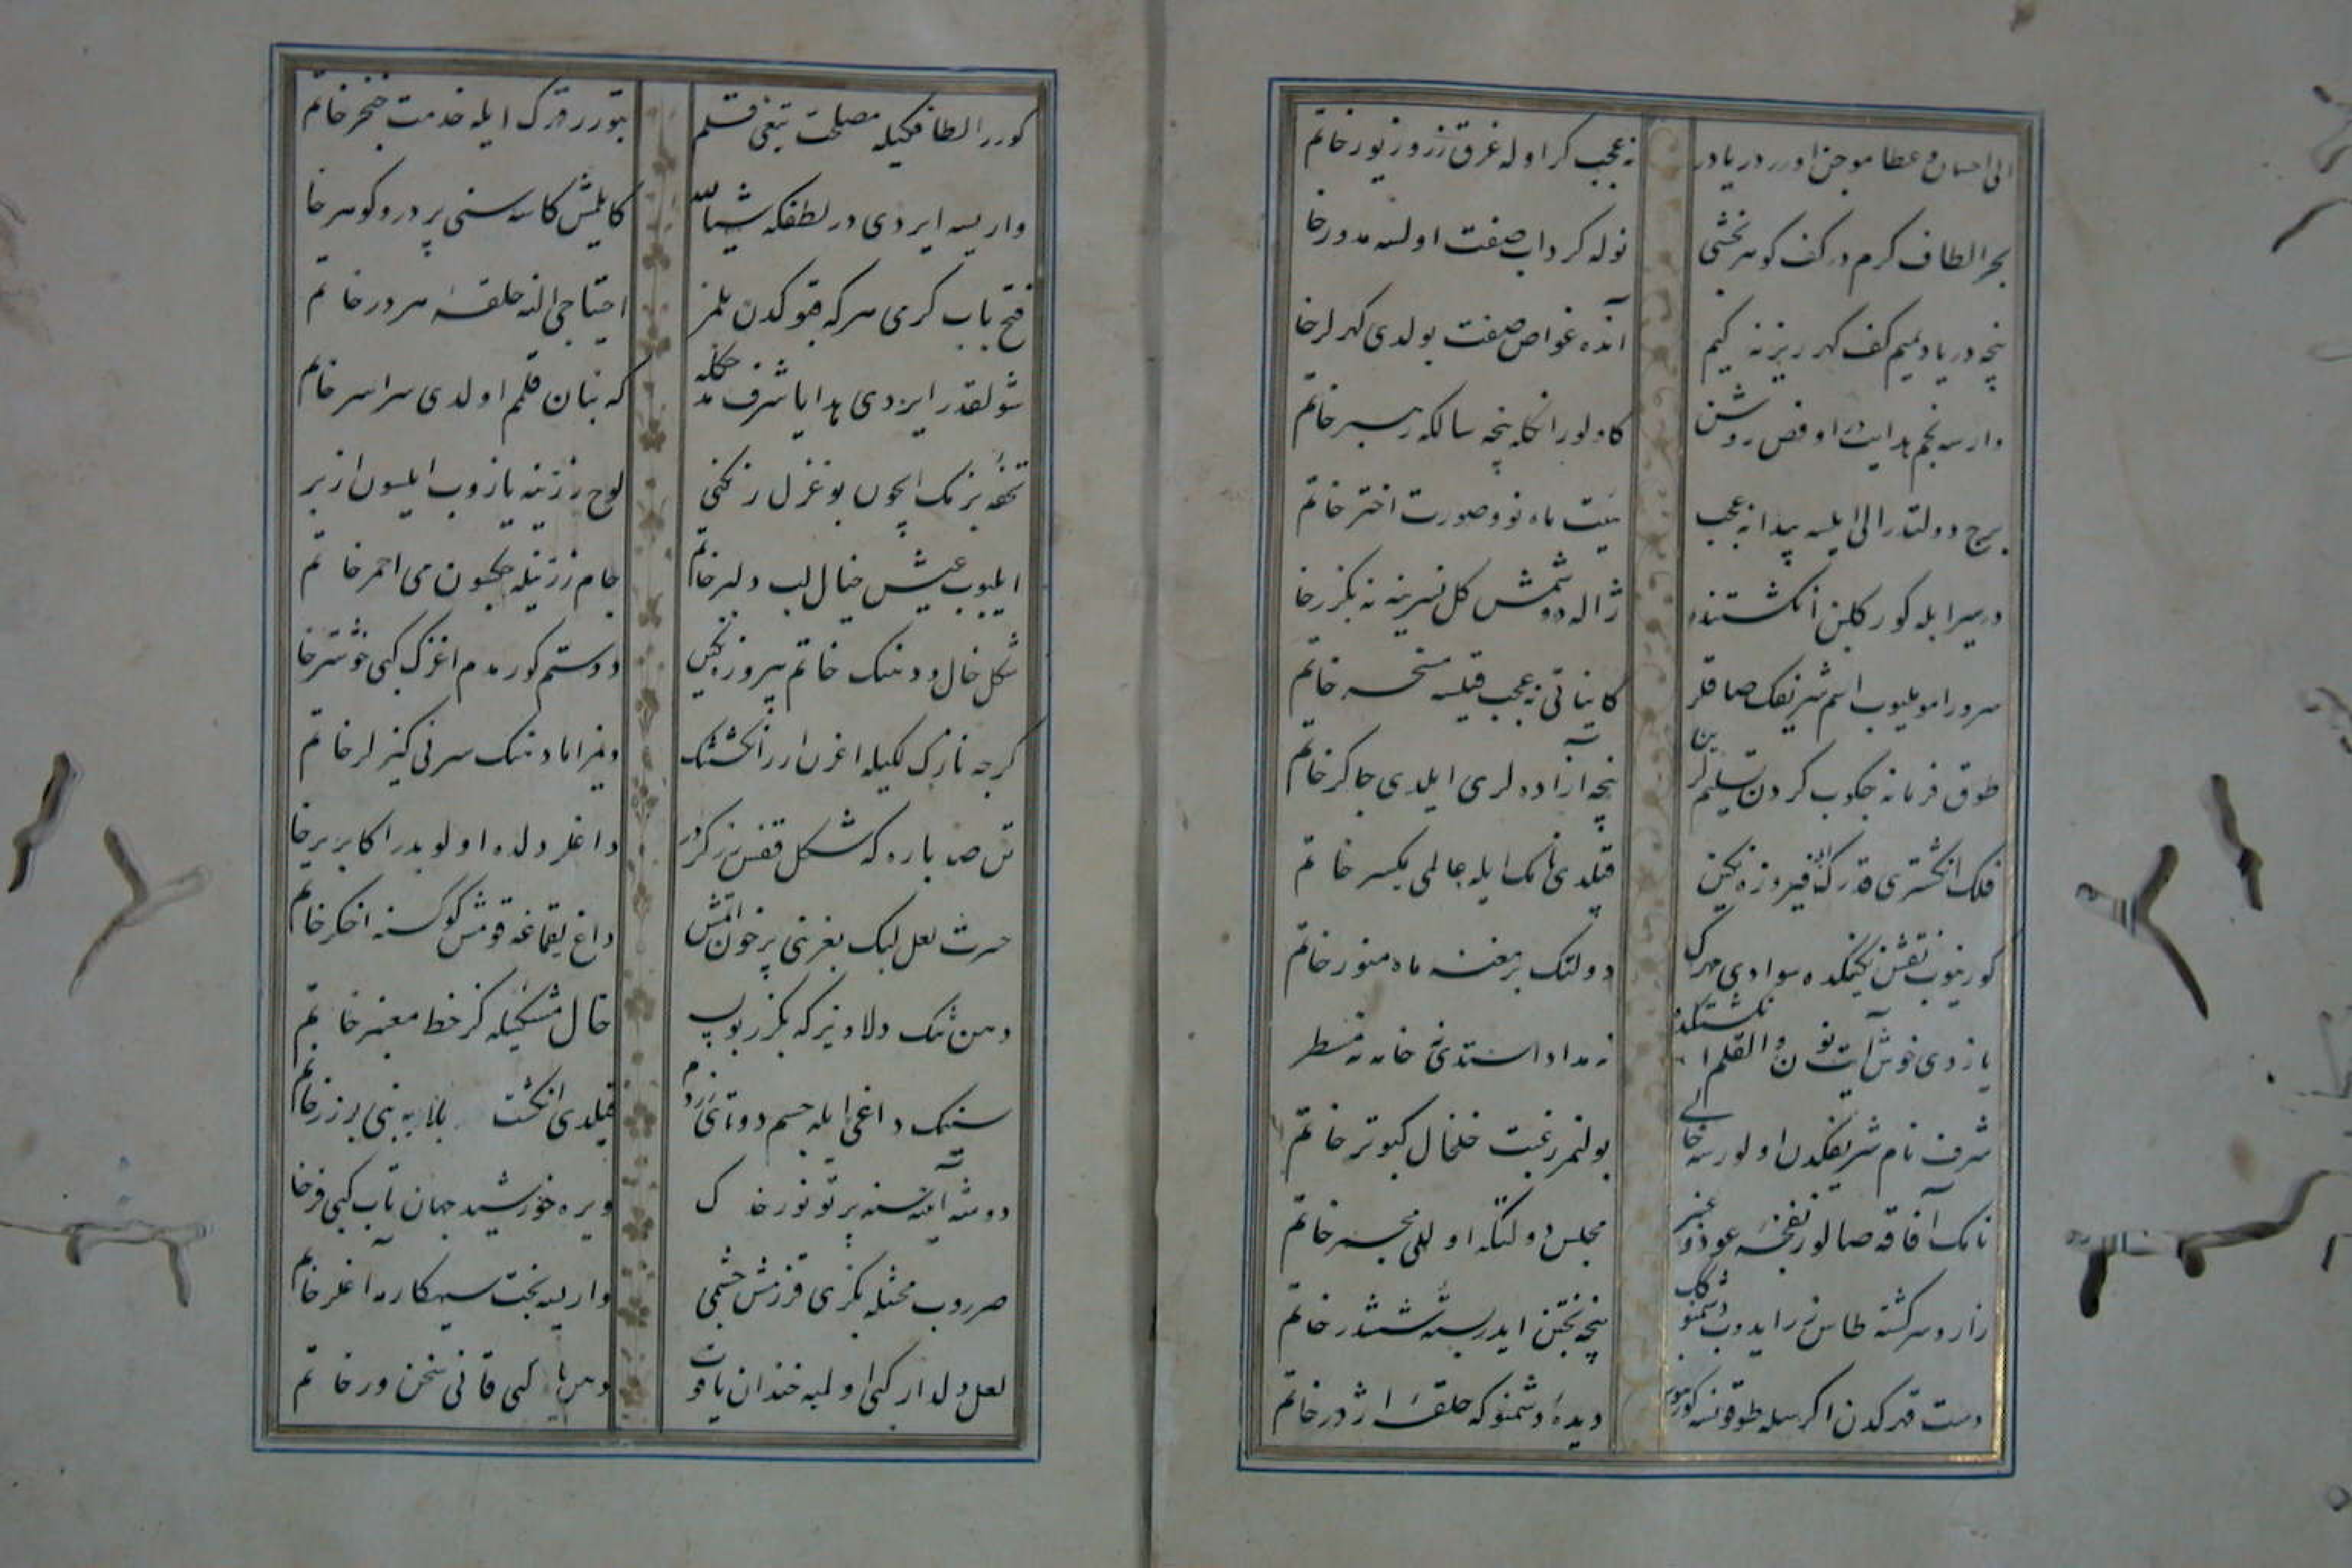 الی احسان و عطا موجن اورر دریادر
نه عجب کر اوله غرق زر و زیور خاتم
بحر الطاف کرم در کف کوهر بخشی
نوله کرداب صفت اولسه مدور خا
نیجه دریا دیمیم کف کهر ریزنه کیم
آنده غواص صفت بولدی کهرلر خا
وارسه نجم هدایتدر او فص روشن
کاولور انکله نیجه سالکه رهبر خاتم
برج دولتدر الی ایلسه پیدا نه عجب
هیئت ماه نو و صورت اختر خاتم
دیر ایله کورکلن انکشتنده
ژاله دوشمش کل نسرینه نه بکزر خا
سرورا مویلیوب اسم شریفک صاقلر
کایناتی نه عجب قیلسه مسخر خاتم
طوق فرمانه چکوب کردن تسلیملرین
نیجه آزاده لری ایلدی چاکر خاتم
فلک انکشتری قدرک فیروزه نکین
قیلدی نامک ایله عالمی یکسر خاتم
کورینوب نقش نکینکده سوادی مهرک
دولتک برمغنه ماه منور خاتم
یازدی خوش آیت نون والقلم انکشتکده
نه مداد استدی نه خامه نه مسطر
شرف نام شریفکدن اولورسه خالی
بولنمز رغبت خلخال کبوتر خاتم
نامک آفاقه صالور نفخه عود و عنبر
مجلس دولتکه اولهلی مجمر خاتم
زار و سرکشته طاس نرد ایدوب دشمنوکی
نیجه نجتن ایدر بسته ششدر خاتم
دست قهرکدن اکر سله طوقونسه کورینور
دیده دشمنوکه حلقه اژدر خاتم
کورر الطافکیله مصلحت تیغی قلم
بتورر قهرک ایله خدمت خنجر خاتم
واریسه ایردی در لطفکه شیأ لله
کایلمش کاسه سنی پر در و کوهر خا
فتح باب کرمی هرکه قپوکدن بلمز
احتیاجی النه حلقه هر در خاتم
شولقدر ایردی هدایا شرف مدحکله
که بنان قلمم اولدی سراسر خاتم
تحفه بزمک ایچون بو غزل رنکینی
لوح زرینه یازوب ایلسون ازبر
ایلیوب عیش خیال لب دلبر خاتم
جام زرینله چکسون می احمر خاتم
شکل خال و دهنک خاتم پیروزه نکین
دوستم کورمدم اغزک کبی خوشتر خا
کرچه نازکلکیله اغزن ارر انکشتک
ویرر اما دهنک سرنی کیزلر خاتم
تن صد پاره که شکل قفس زرکردر
داغلر دلده اولوبدر اکا بر بر خا
حسرت لعل لبک بغرنی پر خون اتمش
داغ یقماغه قومش کوکسنه اخکر خاتم
دهن تنک دلاویزکه بکزر بو
خال مشکینله کر خط معنبر خاتم
سنک داغی ایله جسم دوتای زردم
قیلدی انکشت بلایه بنی بر زر خاتم
دوشه آینه سنه پرتو نور خ ک
ویره خورشید جهان تاب کبی فر خا
صرروب محنتله بکزی قزرمش چشمی
واریسه بخت سیهکارمه آغلر خاتم
لعل دلدار کبی اولمیه خندان یاقوت
دهن یار کبی قانی سخن ور خاتم